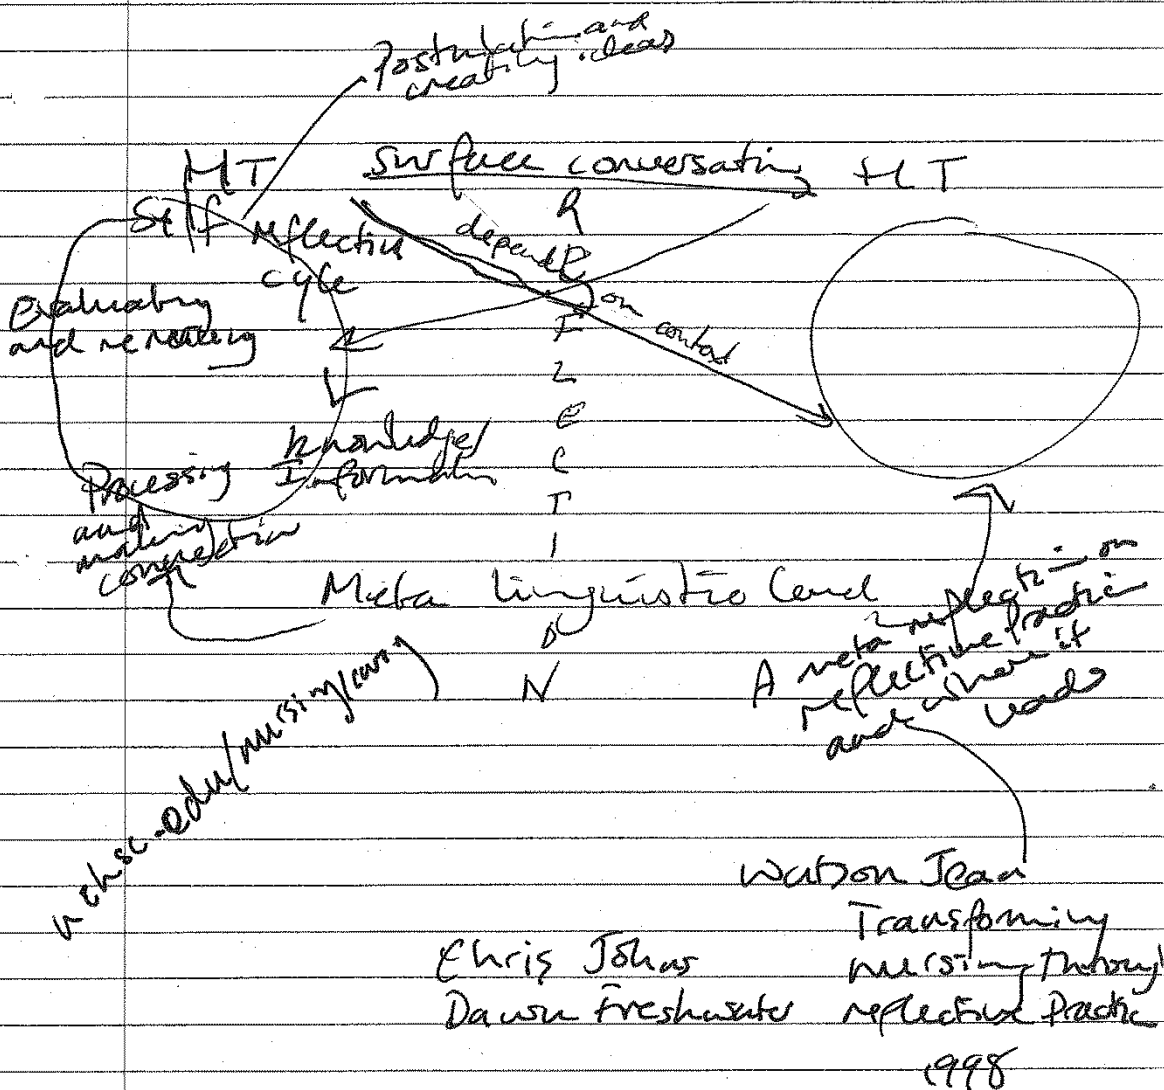 Postulation and
creating ideas
HT surface conversation HT
Self reflective
cycle
depend
on context
Evaluating
and renewing
Knowledge/
Information
Processing
and
making
connection
R
E
F
L
E
C
T
I
O
N
Meta linguistic
A meta reflection on
reflective Practice
and where it
leads
uchsc.edu/nursing/caring
Watson Jean
Transforming
nursing through
reflective Practice
1998
Chris Johns
Dawn Freshwater